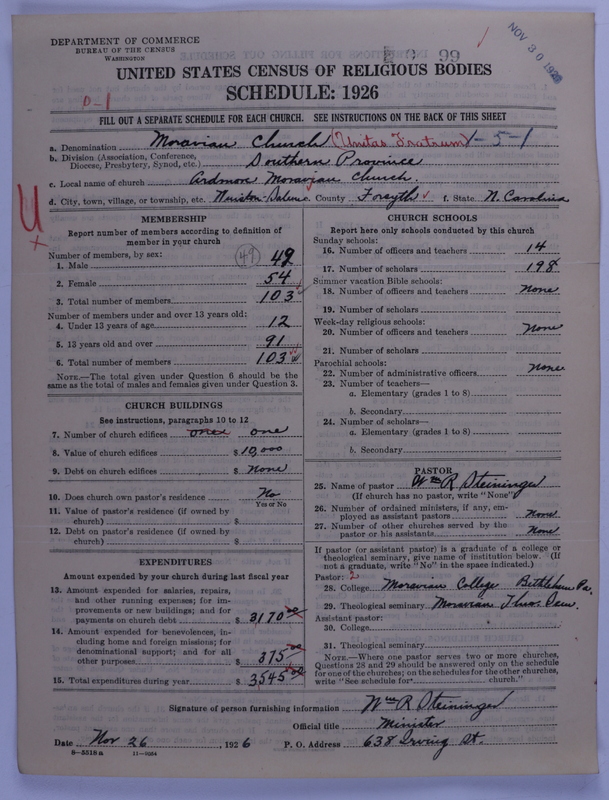 NOV 30 1926
DEPARTMENT OF COMMERCE
BUREAU OF THE CENSUS
WASHINGTON
99
UNITED STATES CENSUS OF RELIGIOUS BODIES
SCHEDULE: 1926
0-1
FILL OUT A SEPARATE SCHEDULE FOR EACH CHURCH. SEE INSTRUCTIONS ON THE BACK OF THIS SHEET
a. Denomination Moravian Church (Unitas Fratrum) 1-5-1
b. Division (Association, Conference, Diocese, Presbytery, Synod, etc.) Southern Province
c. Local name of church Ardmore Moravian Church.
d. City, town, village, or township, etc. Winston-Salem e. County Forsyth f. State N. Carolina
U
x
MEMBERSHIP
Report number of members according to definition of member in your church
Number of members, by sex:
1. Male (49) 49
2. Female 54
3. Total number of members 103
Number of members under and over 13 years old:
4. Under 13 years of age 12
5. 13 years old and over 91
6. Total number of members 103
NOTE.—The total given under Question 6 should be the same as the total of males and females given under Question 3.
CHURCH BUILDINGS
See instructions, paragraphs 10 to 12
7. Number of church edifices one
8. Value of church edifices $10,000
9. Debt on church edifices $ None
10. Does church own pastor's residence No
Yes or No
11. Value of pastor's residence (if owned by church) $
12. Debt on pastor's residence (if owned by church) $
EXPENDITURES
Amount expended by your church during last fiscal year
13. Amount expended for salaries, repairs, and other running expenses; for improvements or new buildings; and for payments on church debt $ 3170.00
14. Amount expended for benevolences, including home and foreign missions; for denominational support; and for all other purposes $ 375.00
15. Total expenditures during year $ 3545.00
CHURCH SCHOOLS
Report here only schools conducted by this church
Sunday schools:
16. Number of officers and teachers 14
17. Number of scholars 198
Summer vacation Bible schools:
18. Number of officers and teachers None
19. Number of scholars
Week-day religious schools:
20. Number of officers and teachers None
21. Number of scholars
Parochial schools:
22. Number of administrative officers None
23. Number of teachers—
a. Elementary (grades 1 to 8)
b. Secondary
24. Number of scholars—
a. Elementary (grades 1 to 8)
b. Secondary
PASTOR
25. Name of pastor Wm R Steininger
(If church has no pastor, write "None")
26. Number of ordained ministers, if any, employed as assistant pastors None
27. Number of other churches served by the pastor or his assistants None
If pastor (or assistant pastor) is a graduate of a college or theological seminary, give name of institution below. (If not a graduate, write "No" in the space indicated.)
Pastor: 2
28. College Moravian College Bethlehem Pa.
29. Theological seminary Moravian Theo. Sem.
Assistant pastor:
30. College
31. Theological seminary
NOTE.—Where one pastor serves two or more churches, Questions 28 and 29 should be answered only on the schedule for one of the churches; on the schedules for the other churches, write "See schedule for church."
Signature of person furnishing information Wm R Steininger
Official title Minister
Date Nov 26, 1926 P. O. Address 638 Irving St.
8—5518 a 11—9064